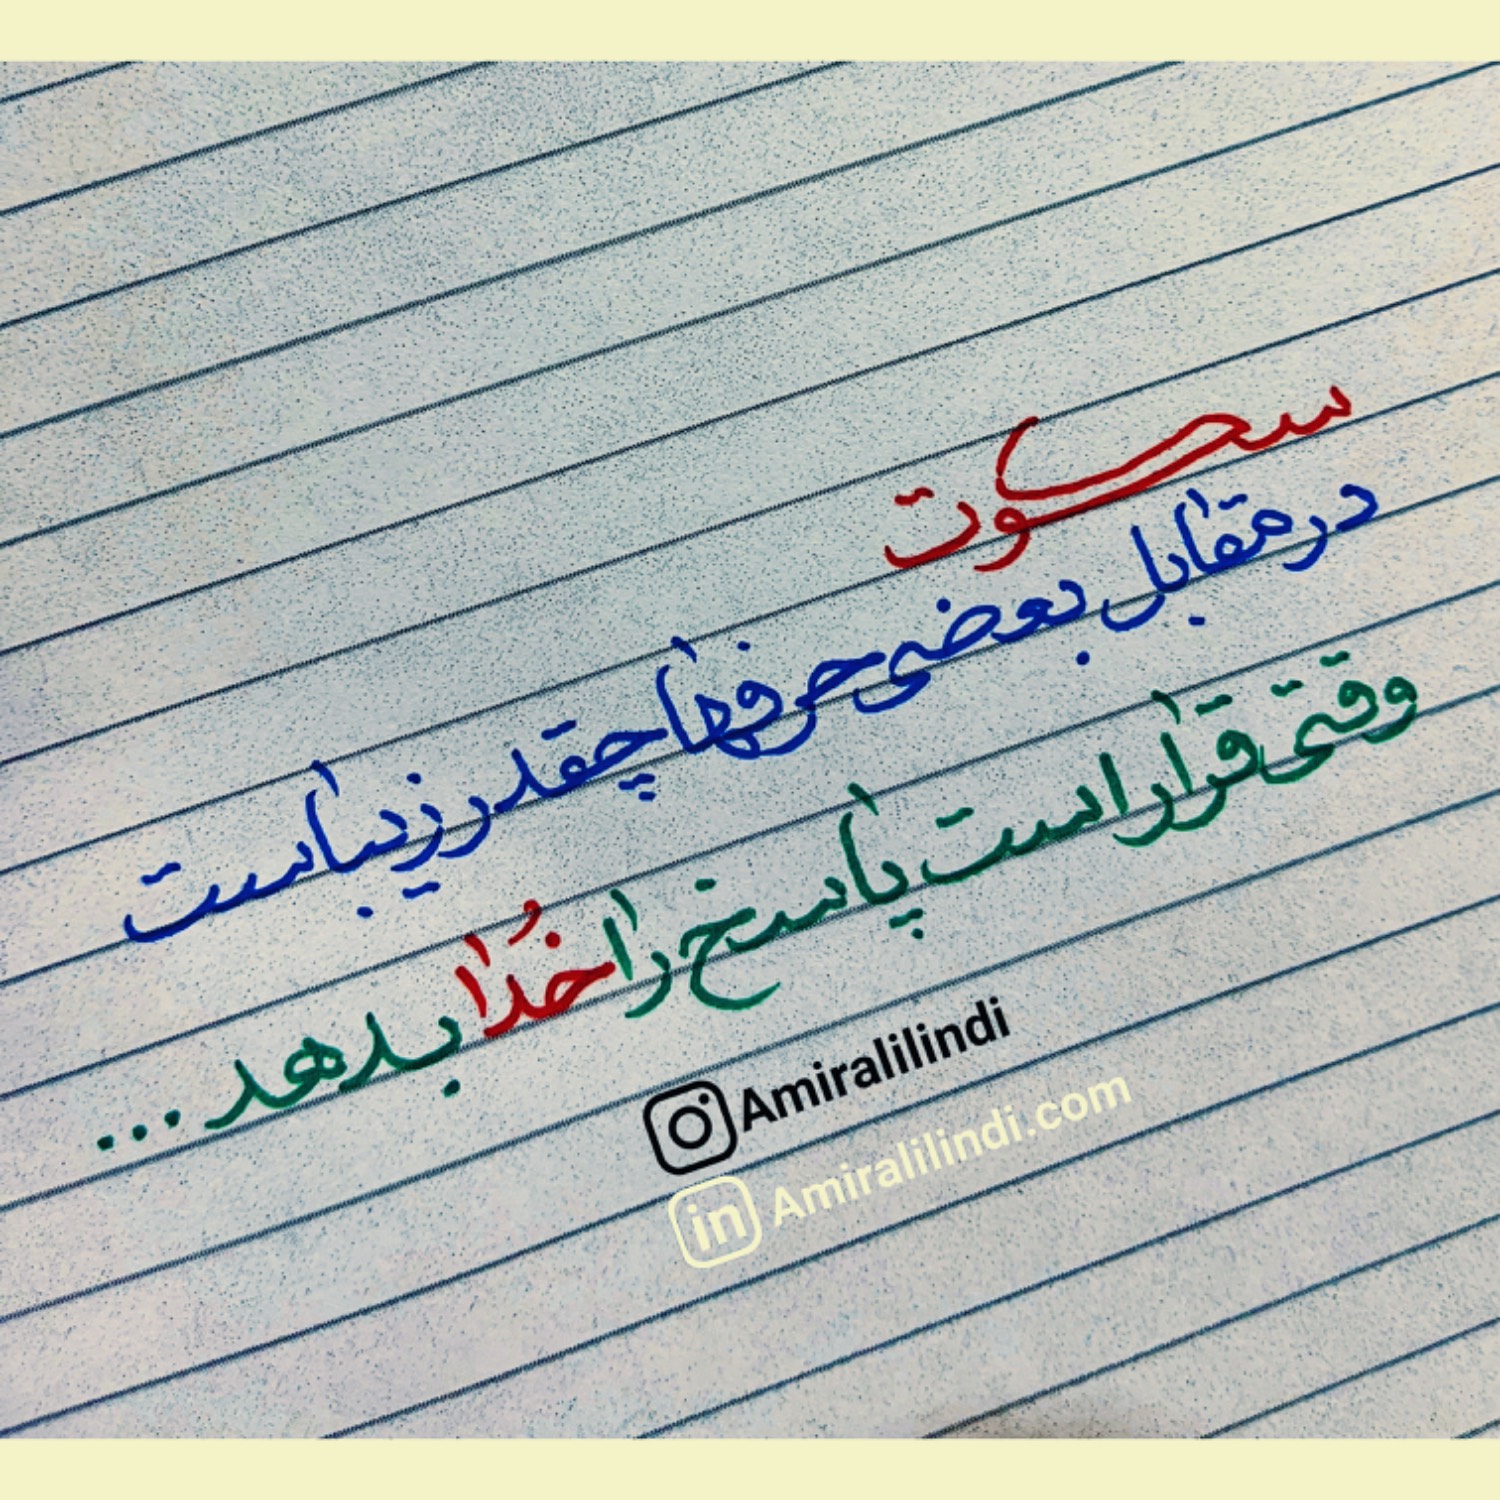 سکوت
در مقابل بعضی حرفها چقدر زیباست
وقتی قرار است پاسخ را خُدا بدهد...
Amiralilindi
in Amiralilindi.com